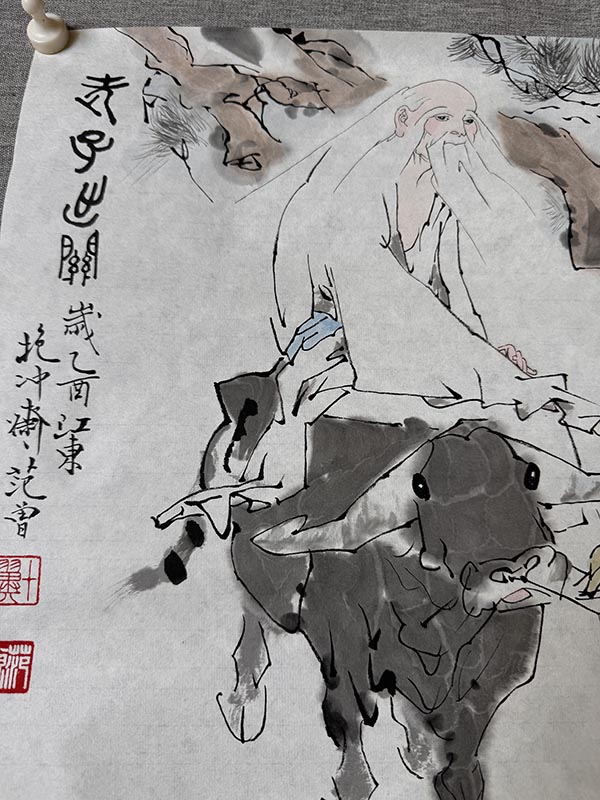 老子出關 歲乙酉江東
抱冲齋 范曾
十翼
范